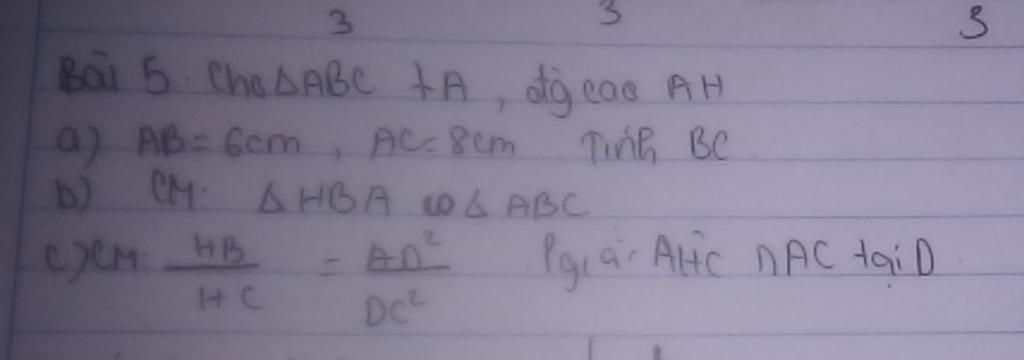 3 3 3
Bài 5. Cho ΔABC ⊥A, đg cao AH
a) AB = 6cm, AC = 8cm Tính BC
b) CM. ΔHBA ∽ Δ ABC
c) CM: HB/HC = AD²/DC² Pgiác AHC ∩AC tại D